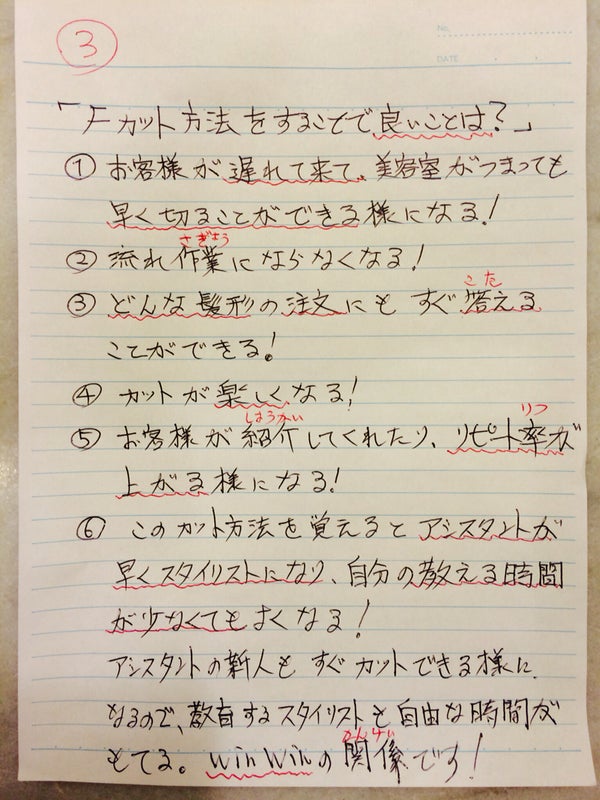 3
No.
DATE
「Fカット方法をすることで良いことは?」
① お客様が遅れて来て、美容室がつまっても
早く切ることができる様になる!
さぎょう
② 流れ作業にならなくなる!
こた
③ どんな髪形の注文にもすぐ答える
ことができる!
④ カットが楽しくなる!
しょうかい りつ
⑤ お客様が紹介してくれたり、リピート率が
上がる様になる!
⑥ このカット方法を覚えるとアシスタントが
早くスタイリストになり、自分の教える時間
が少なくてもよくなる!
アシスタントの新人もすぐカットできる様に
なるので、教育するスタイリストも自由な時間が
かんけい
もてる。WinWinの関係です!